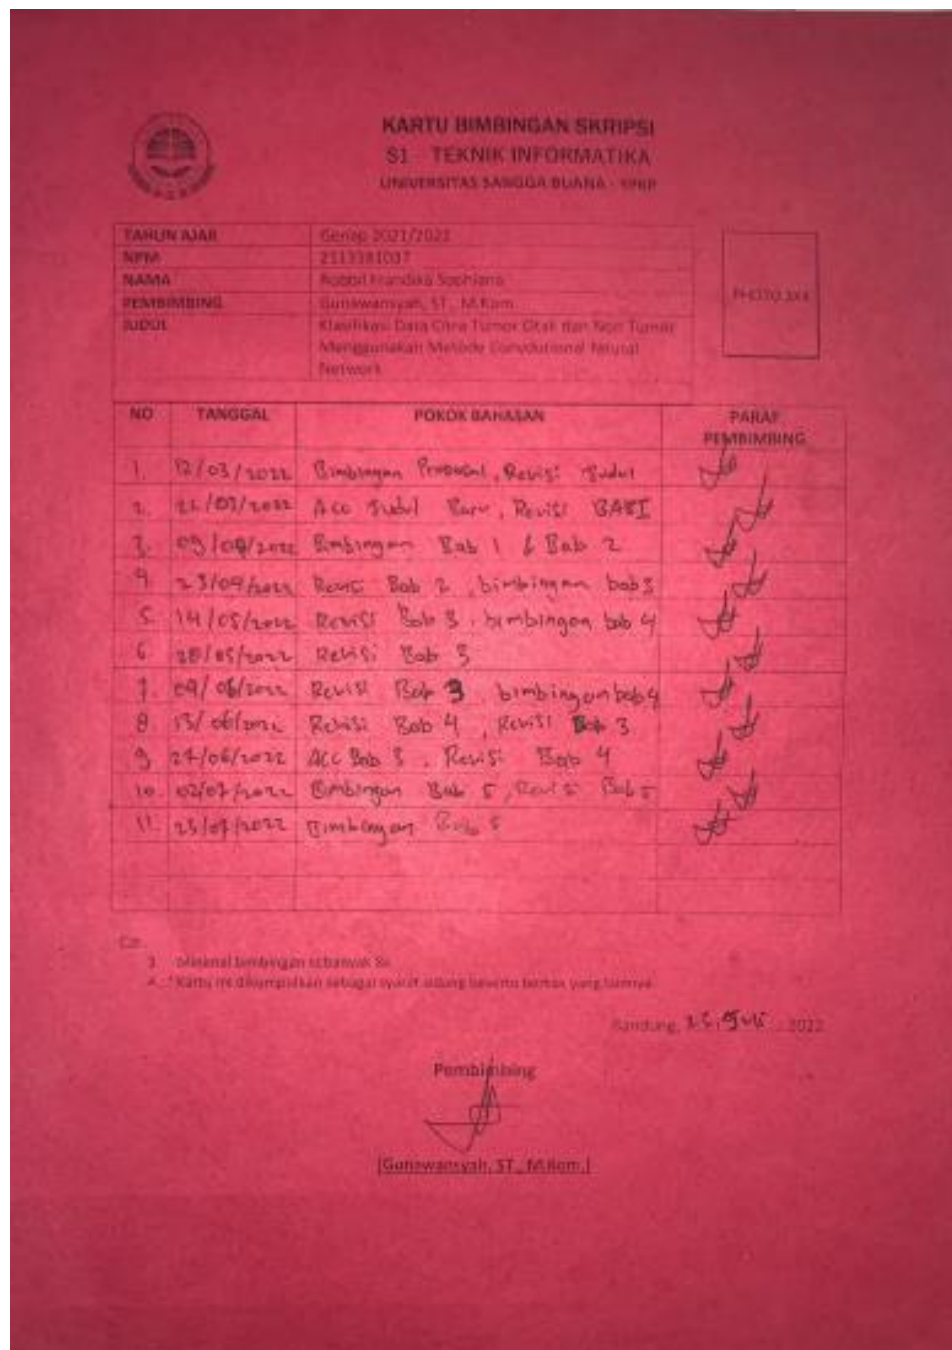 KARTU BIMBINGAN SKRIPSI
S1 - TEKNIK INFORMATIKA
UNIVERSITAS SANGGA BUANA - YPKP
TAHUN AJAR Genap 2021/2022
NPM
NAMA Sophiana
PEMBIMBING Gunawansyah, ST., M.Kom
JUDUL Klasifikasi Data Citra Tumor Otak dan Non Tumor
Menggunakan Metode Convolutional Neural
Network
PHOTO 3X4
NO TANGGAL POKOK BAHASAN PARAF
PEMBIMBING
1. 12/03/2022 Bimbingan Proposal, Revisi Judul
2. Acc Judul Baru, Revisi BAB I
3. Bimbingan Bab 1 & Bab 2
4. 23/04/2022 Revisi Bab 2, bimbingan bab 3
5. 14/05/2022 Revisi Bab 3, bimbingan bab 4
6. Revisi Bab 3
7. Revisi Bab 3 bimbingan bab 4
8. Revisi Bab 4, Revisi Bab 3
9. Acc Bab 3, Revisi Bab 4
10. 02/07/2022 Bimbingan Bab 5, Revisi Bab 5
11. Bimbingan Bab 5
Minimal bimbingan sebanyak 8x
Kartu ini dikumpulkan sebagai syarat sidang beserta berkas yang lainnya
Bandung, Juli 2022
Pembimbing
[Gunawansyah, ST., M.Kom.]